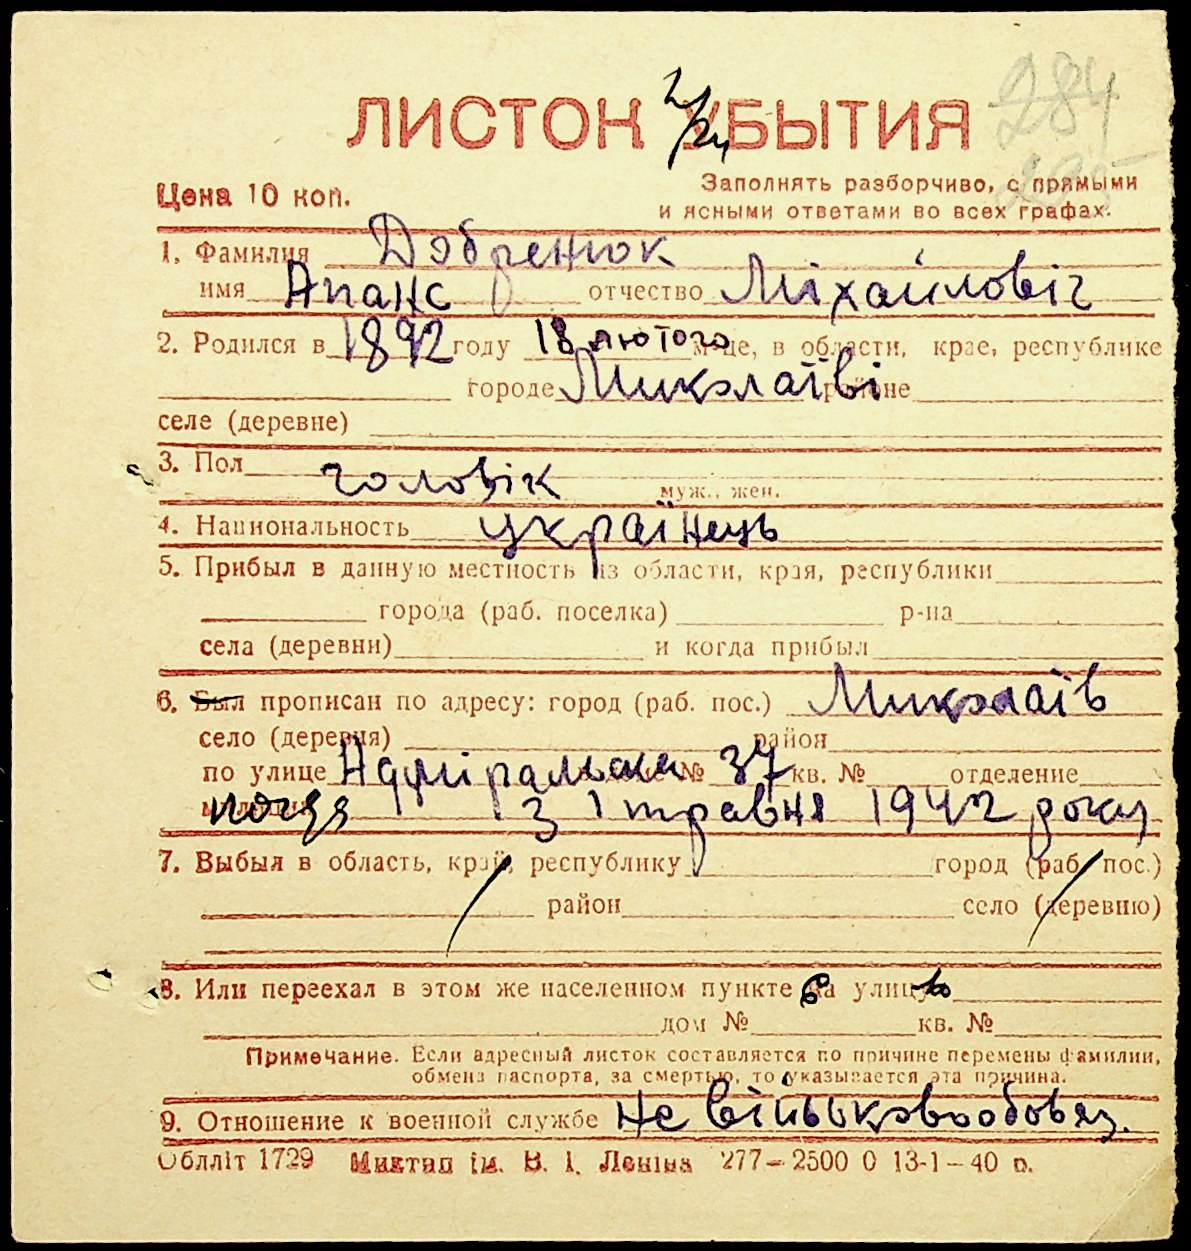 284
ЛИСТОК УБЫТИЯ
Цена 10 коп.
Заполнять разборчиво, с прямыми
и ясными ответами во всех графах.
1. Фамилия Добренюк
имя Апанс отчество Міхайловіч
2. Родился в 1892 году 18 лютого м-це, в области, крае, республике
городе Миколаїві районе
селе (деревне)
3. Пол чоловік муж., жен.
4. Национальность українець
5. Прибыл в данную местность из области, края, республики
города (раб. поселка) р-на
села (деревни) и когда прибыл
6. Был прописан по адресу: город (раб. пос.) Миколаїв
село (деревня) район
по улице Адміральска № 37 кв. № отделение
милиции з 1 травня 1942 року
7. Выбыл в область, край, республику город (раб. пос.)
район село (деревню)
8. Или переехал в этом же населенном пункте на улицу
дом № кв. №
Примечание. Если адресный листок составляется по причине перемены фамилии,
обмена паспорта, за смертью, то указывается эта причина.
9. Отношение к военной службе не військовообовяз.
Облліт 1729 Миктип ім. В. І. Леніна 277–2500 0 13-1–40 р.